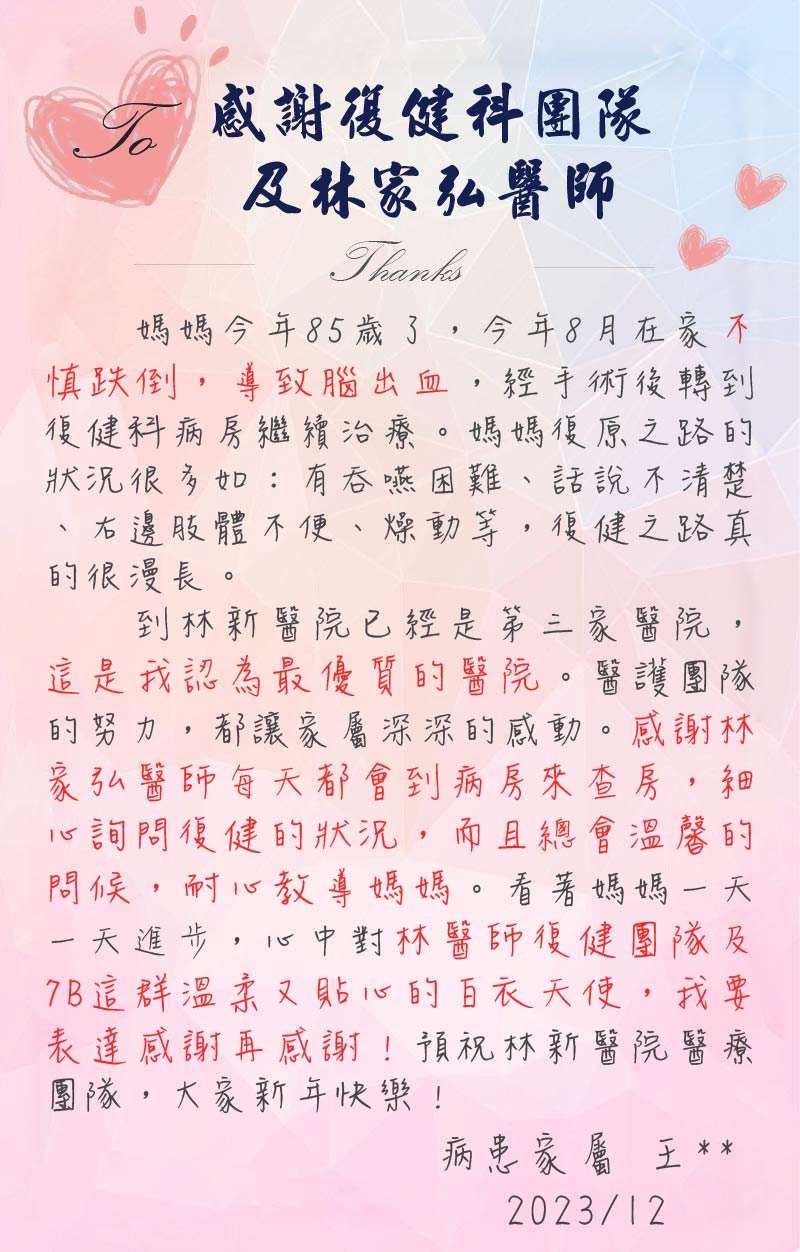 To
感謝復健科團隊
及林家弘醫師
Thanks
媽媽今年85歲了，今年8月在家不
慎跌倒，導致腦出血，經手術後轉到
復健科病房繼續治療。媽媽復原之路的
狀況很多如：有吞嚥困難、話說不清楚
、右邊肢體不便、燥動等，復健之路真
的很漫長。
到林新醫院已經是第三家醫院，
這是我認為最優質的醫院。醫護團隊
的努力，都讓家屬深深的感動。感謝林
家弘醫師每天都會到病房來查房，細
心詢問復健的狀況，而且總會溫馨的
問候，耐心教導媽媽。看著媽媽一天
一天進步，心中對林醫師復健團隊及
7B這群溫柔又貼心的白衣天使，我要
表達感謝再感謝！預祝林新醫院醫療
團隊，大家新年快樂！
病患家屬 王**
2023/12